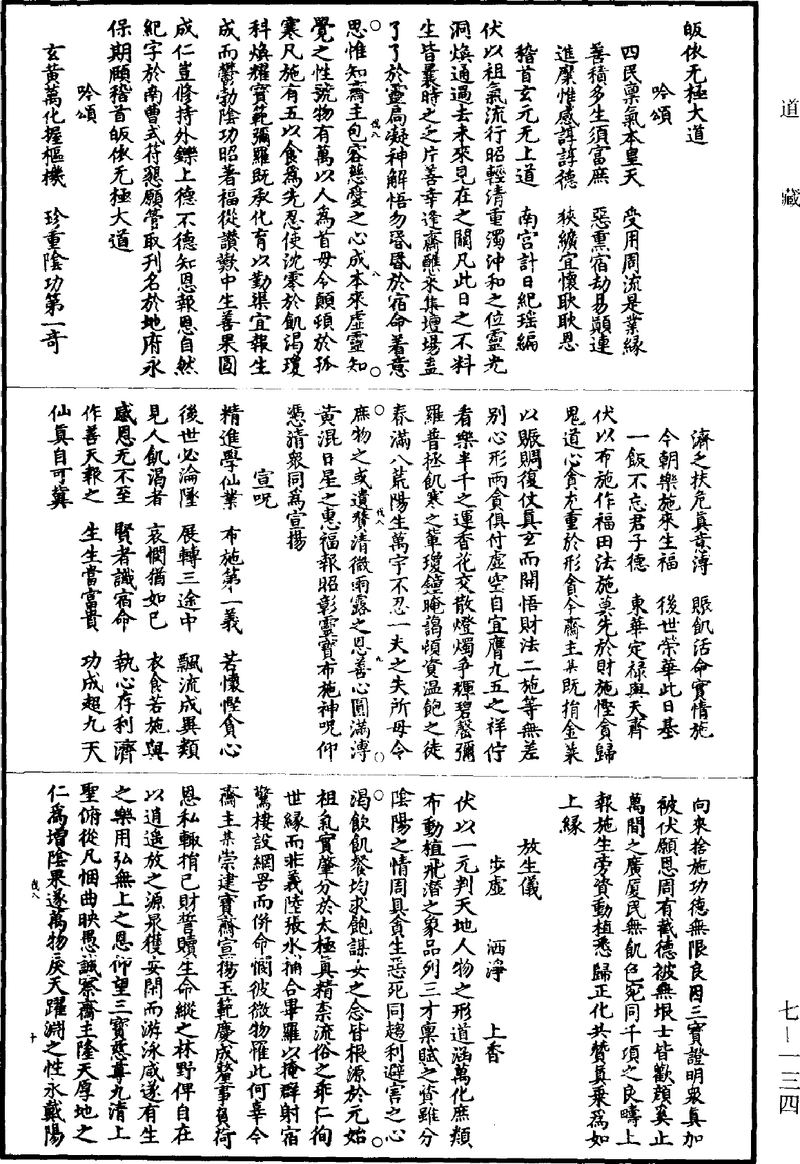 道藏
七—一三四
皈依无極大道
吟頌
四民稟氣本皇天　受用周流是業緣
善積多生須富庶　惡熏宿劫易顛連
進糜惟感諄諄德　挾纊宜懷耿耿恩
稽首玄元无上道　南宮計日紀瑶編
伏以祖氣流行昭輕清重濁沖和之位靈光
洞煥通過去未來見在之關凡此日之不料
生皆曩時之乏片善幸逢齋醮來集壇場盍
了了於靈扃凝神解悟勿昏昏於宿命着意
思惟知齋主包容慈愛之心成本來虛靈知
覺之性號物有萬以人爲首毋令顛頓於孤
寒凡施有五以食爲先忍使沈寒於飢渴瓊
科煥耀寶範彌羅既承化育以勤渠宜報生
成而鬱勃陰功昭著福從讚歎中生善果圓
成仁豈修持外鑠上德不德知恩報恩自然
紀字於南曹式符懇願管取刊名於地府永
保期頤稽首皈依无極大道
吟頌
玄黃萬化握樞機　珍重陰功第一奇
濟之扶危真意溥　賑飢活命實情施
今朝樂施來生福　後世榮華此日基
一飯不忘君子德　東華定禄與天齊
伏以布施作福田法施莫先於財施慳貪歸
鬼道心貪尤重於形貪今齋主某既捐金菜
以賑賙復仗真玄而開悟財法二施等無差
別心形兩貪俱付虛空自宜膺九五之祥佇
看樂半千之運香花交散燈燭爭輝碧磬彌
羅普拯飢寒之輩瓊鐘晻藹頓資温飽之徒
春滿八荒陽生萬宇不忍一夫之失所毋令
庶物之或遺贊清微雨露之恩善心圓滿溥
黃混日星之惠福報昭彰靈寶布施神呪仰
憑清衆同爲宣揚
宣呪
精進學仙業　布施第一義　若懷慳貪心
後世必淪墮　展轉三途中　飄流成異類
見人飢渴者　哀憫猶如己　衣食苦施與
感恩无不至　賢者識宿命　執心存利濟
作善天報之　生生當富貴　功成超九天
仙真自可冀
向來捨施功德無限良因三寶證明衆真加
被伏願恩周有截德被無垠士皆歡顔奚止
萬間之廣厦民無飢色宛同千頃之良疇上
報施生旁資動植悉歸正化共贊真乗爲如
上緣
放生儀
步虛　洒淨　上香
伏以一元判天地人物之形道涵萬化庶類
布動植飛潛之象品列三才稟賦之資雖分
陰陽之情周具貪生惡死同趨利避害之心
渴飲飢餐均求飽謀安之念皆根源於元始
祖氣實肇分於太極真精柰流俗之乖仁徇
世緣而非義陸張水捕合畢羅以掩群射宿
驚棲設網罟而併命憫彼微物罹此何辜今
齋主某崇建寶齋宣揚玉範慶成釐事負荷
恩私輙捐己財誓贖生命縱之林野俾自在
以逍遥放之源泉獲安閑而游泳咸遂有生
之樂用弘無上之恩仰望三寶慈尊九清上
聖俯從凡悃曲映愚誠察齋主隆天厚地之
仁爲增陰果遂萬物戾天躍淵之性永戴陽